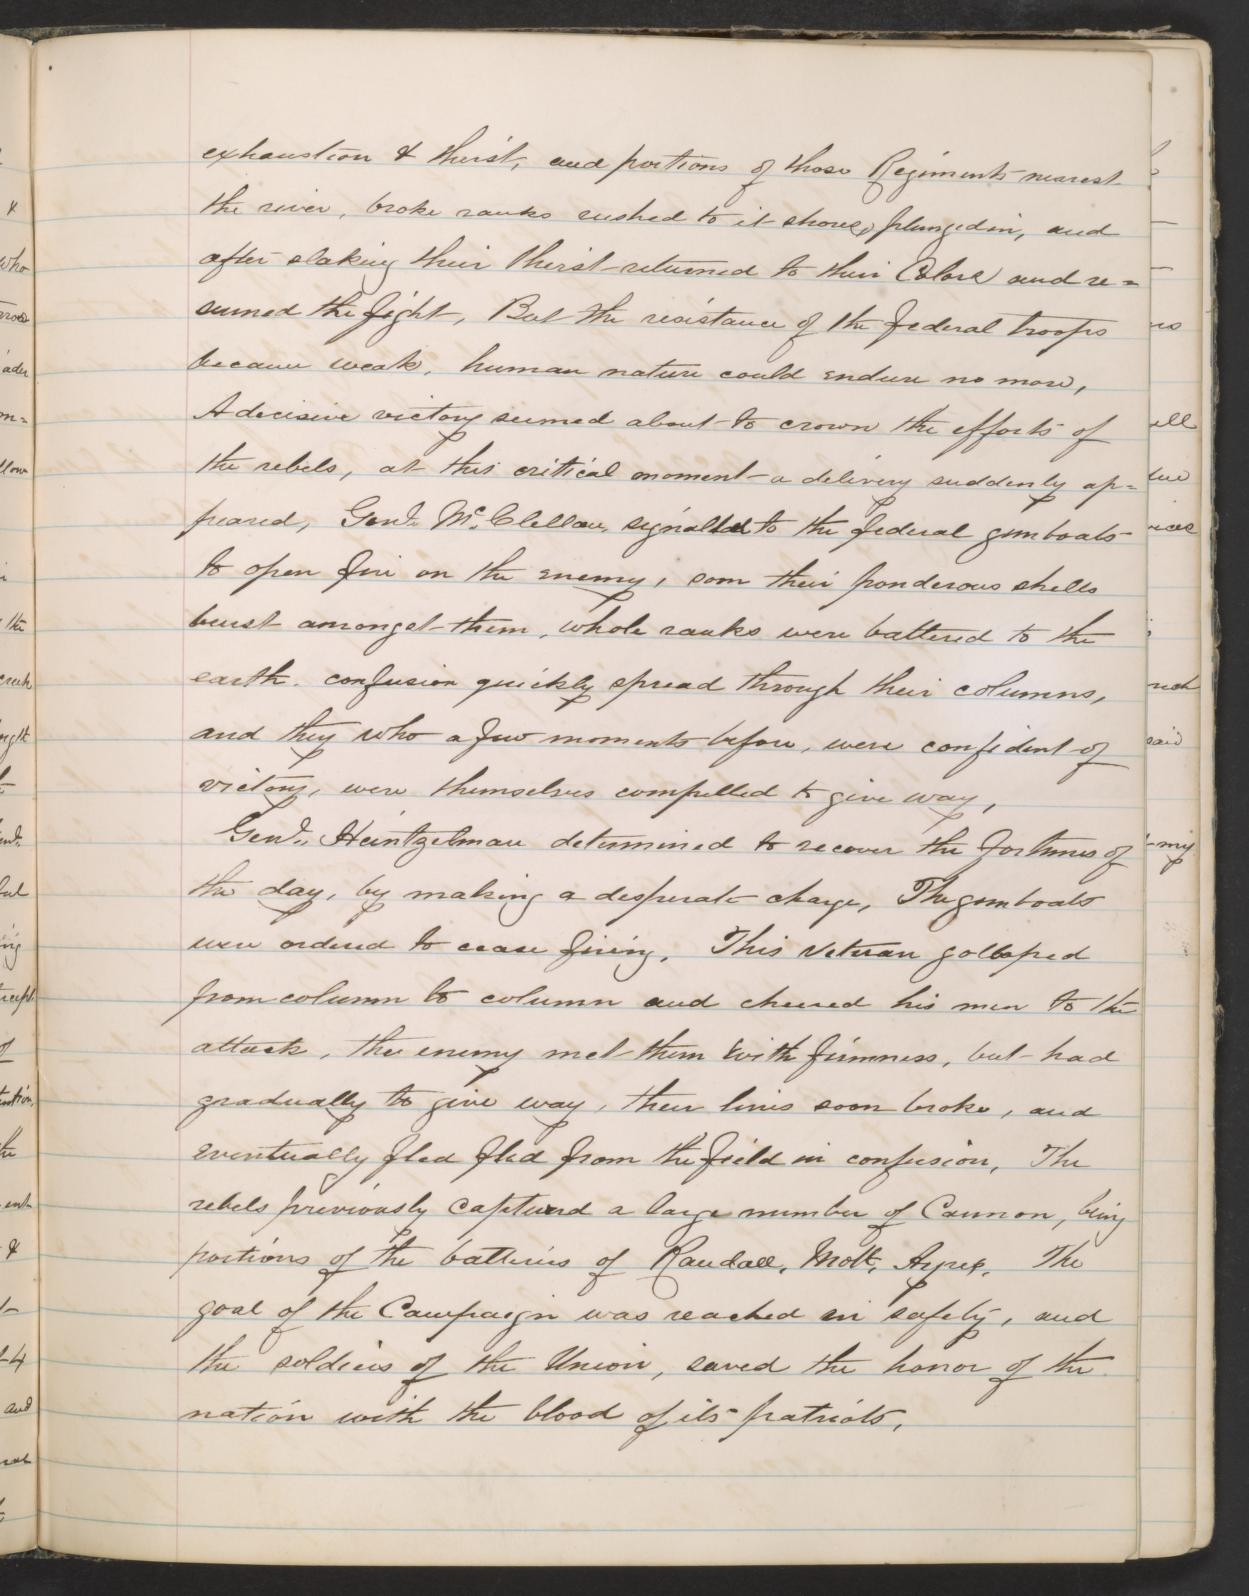 exhaustion & thirst, and portions of those Regiments nearest
the river, broke ranks rushed to it shores, plunged in, and
after slaking their thirst returned to their Colors and re=
sumed the fight, But the resistance of the federal troops
became weak, human nature could endure no more,
A decisive victory seemed about to crown the efforts of
the rebels, at this critical moment a delivery suddenly ap=
peared, Genl. McClellan, signalled to the federal gunboats
to open fire on the enemy, soon their ponderous shells
burst amongst them, whole ranks were battered to the
earth. confusion quickly spread through their columns,
and they who a few moments before, were confident of
victory, were themselves compelled to give way,
Genl. Heintzelman determined to recover the fortunes of
the day, by making a desperate charge, The gunboats
were ordered to cease firing, This veteran galloped
from column to column and cheered his men to the
attack, the enemy met them with firmness, but had
gradually to give way, their lines soon broke, and
eventually fled fled from the field in confusion, The
rebels previously captured a large number of Cannon, being
portions of the batteries of Randall, Mott, Ayres, The
goal of the Campaign was reached in safety, and
the soldiers of the Union, saved the honor of the
nation with the blood of its patriots,